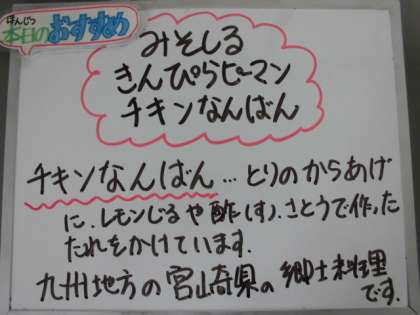 ほんじつ
本日のおすすめ
みそしる
きんぴらピーマン
チキンなんばん
チキンなんばん…とりのからあげ
に、レモンじるや酢(す)、さとうで作った
たれをかけています。
九州地方の宮崎県の郷土料理
です。